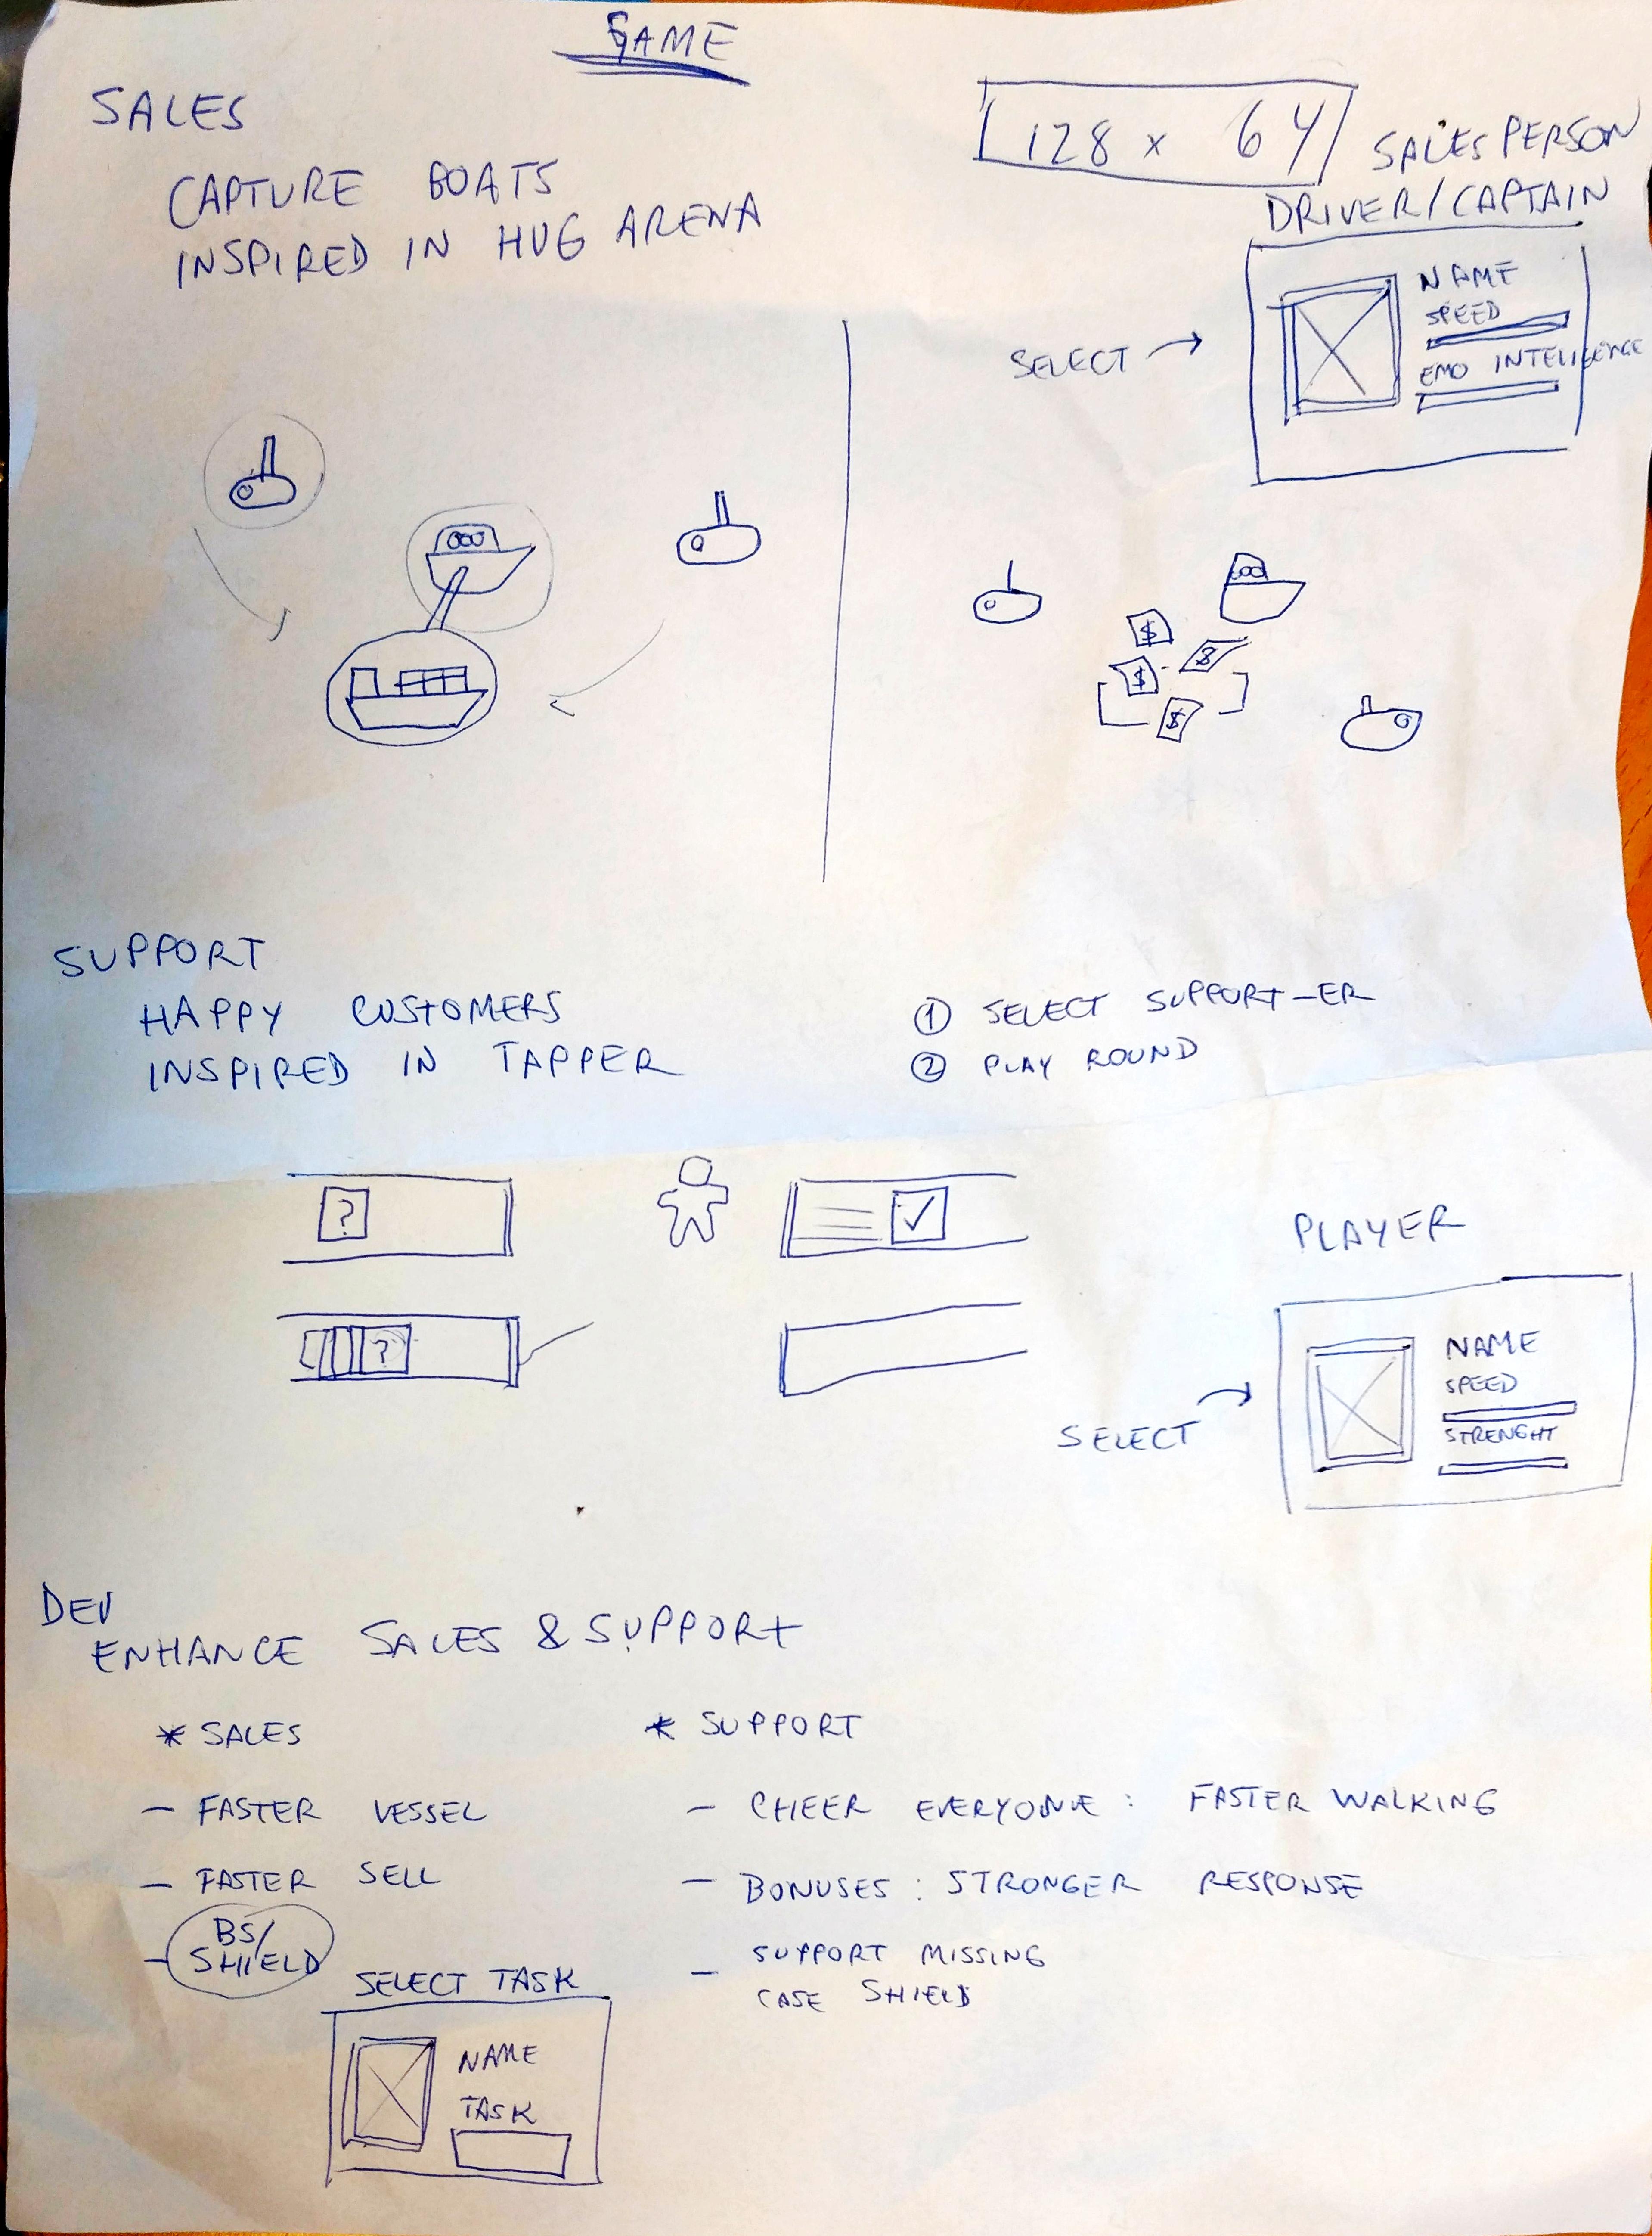 GAME
SALES
CAPTURE BOATS
INSPIRED IN HUG ARENA
128 x 64
SALES PERSON
DRIVER/CAPTAIN
SELECT
NAME
SPEED
EMO INTELIGENCE
$
$
$
$
SUPPORT
HAPPY CUSTOMERS
INSPIRED IN TAPPER
1 SELECT SUPPORT-ER
2 PLAY ROUND
?
✓
?
PLAYER
SELECT
NAME
SPEED
STRENGHT
DEV
ENHANCE SALES & SUPPORT
* SALES
- FASTER VESSEL
- FASTER SELL
- BS/
SHIELD
* SUPPORT
- CHEER EVERYONE : FASTER WALKING
- BONUSES : STRONGER RESPONSE
- SUPPORT MISSING
CASE SHIELD
SELECT TASK
NAME
TASK